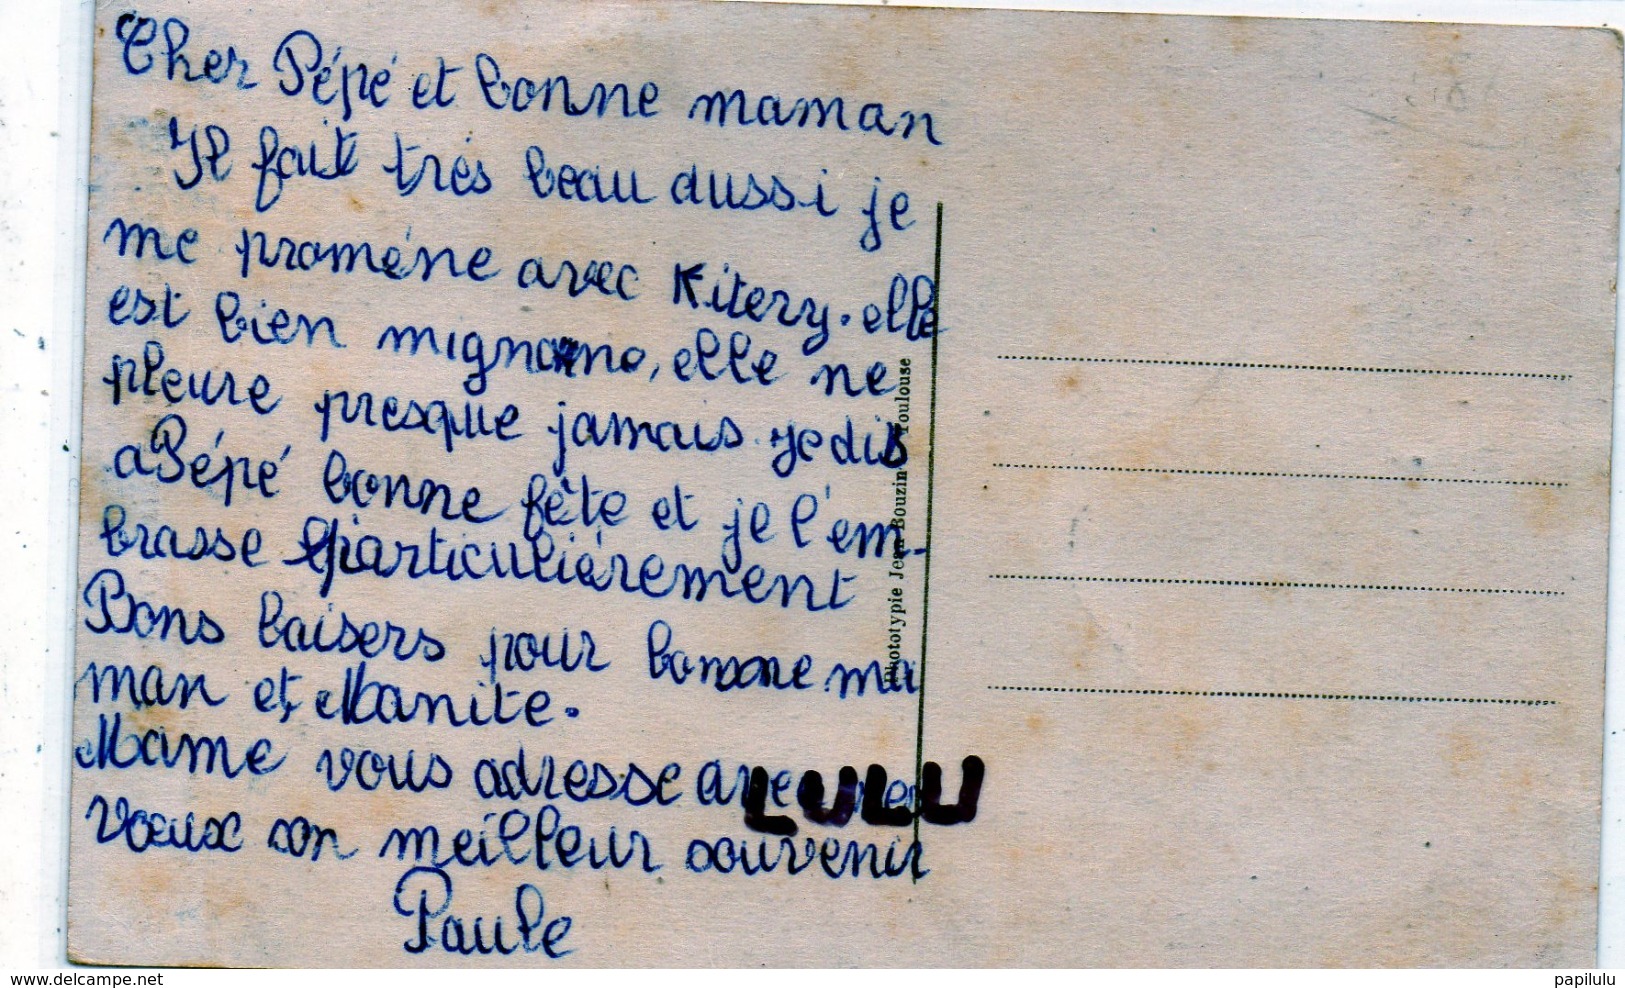 Cher Pépé et bonne maman
Il fait très beau aussi je
me proméne avec Kitery. elle
est bien mignonne, elle ne
pleure presque jamais. je dis
a Pépé bonne fête et je l'em-
brasse particuliérement
Bons baisers pour bonne ma
man et Manite.
Mame vous adresse avec
voeux son meilleur souvenir
Paule
LULU
Phototypie Jean Bouzin Toulouse
www.delcampe.net
papilulu